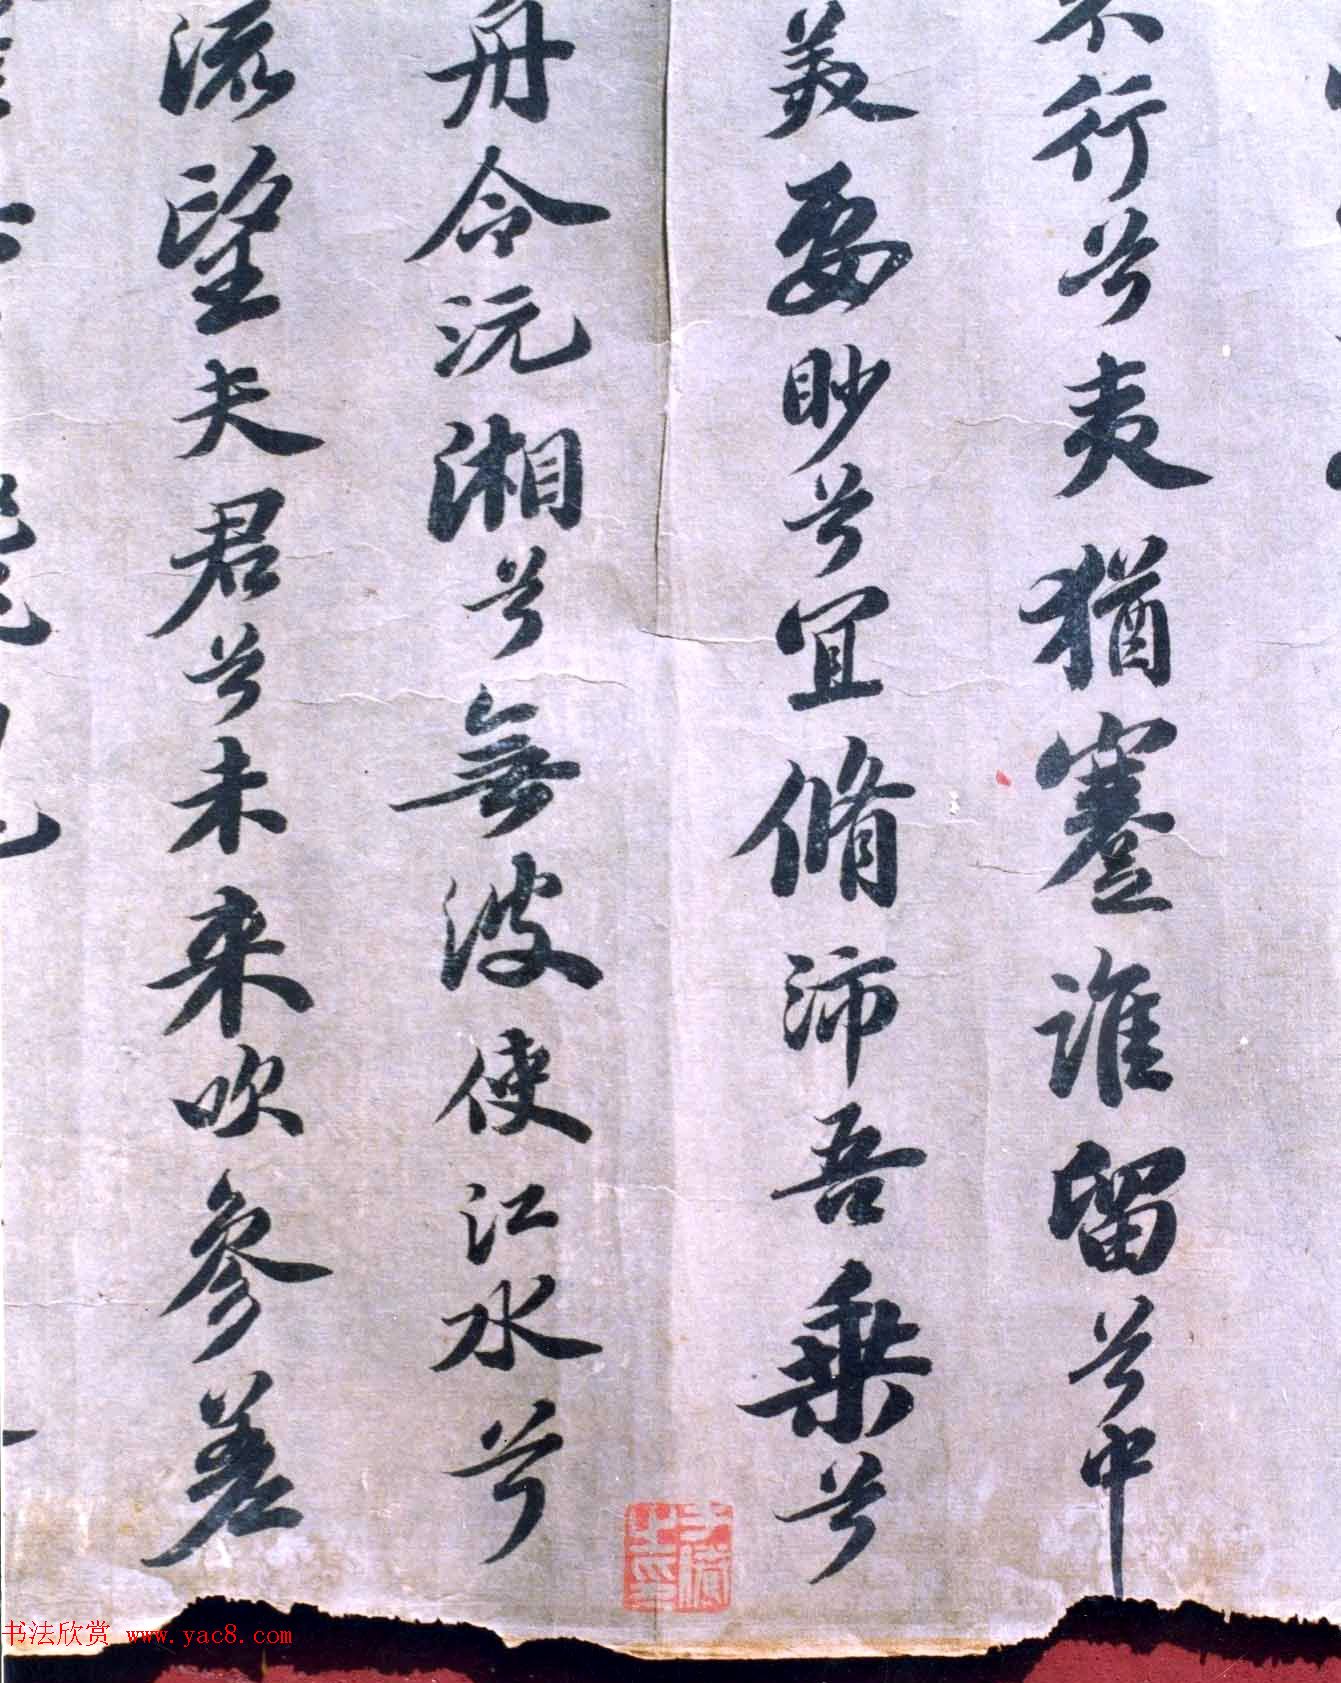 不行兮夷猶蹇誰留兮中
美要眇兮宜脩沛吾乘兮
舟令沅湘兮無波使江水兮
流望夫君兮未來吹參差
书法欣赏 www.yac8.com